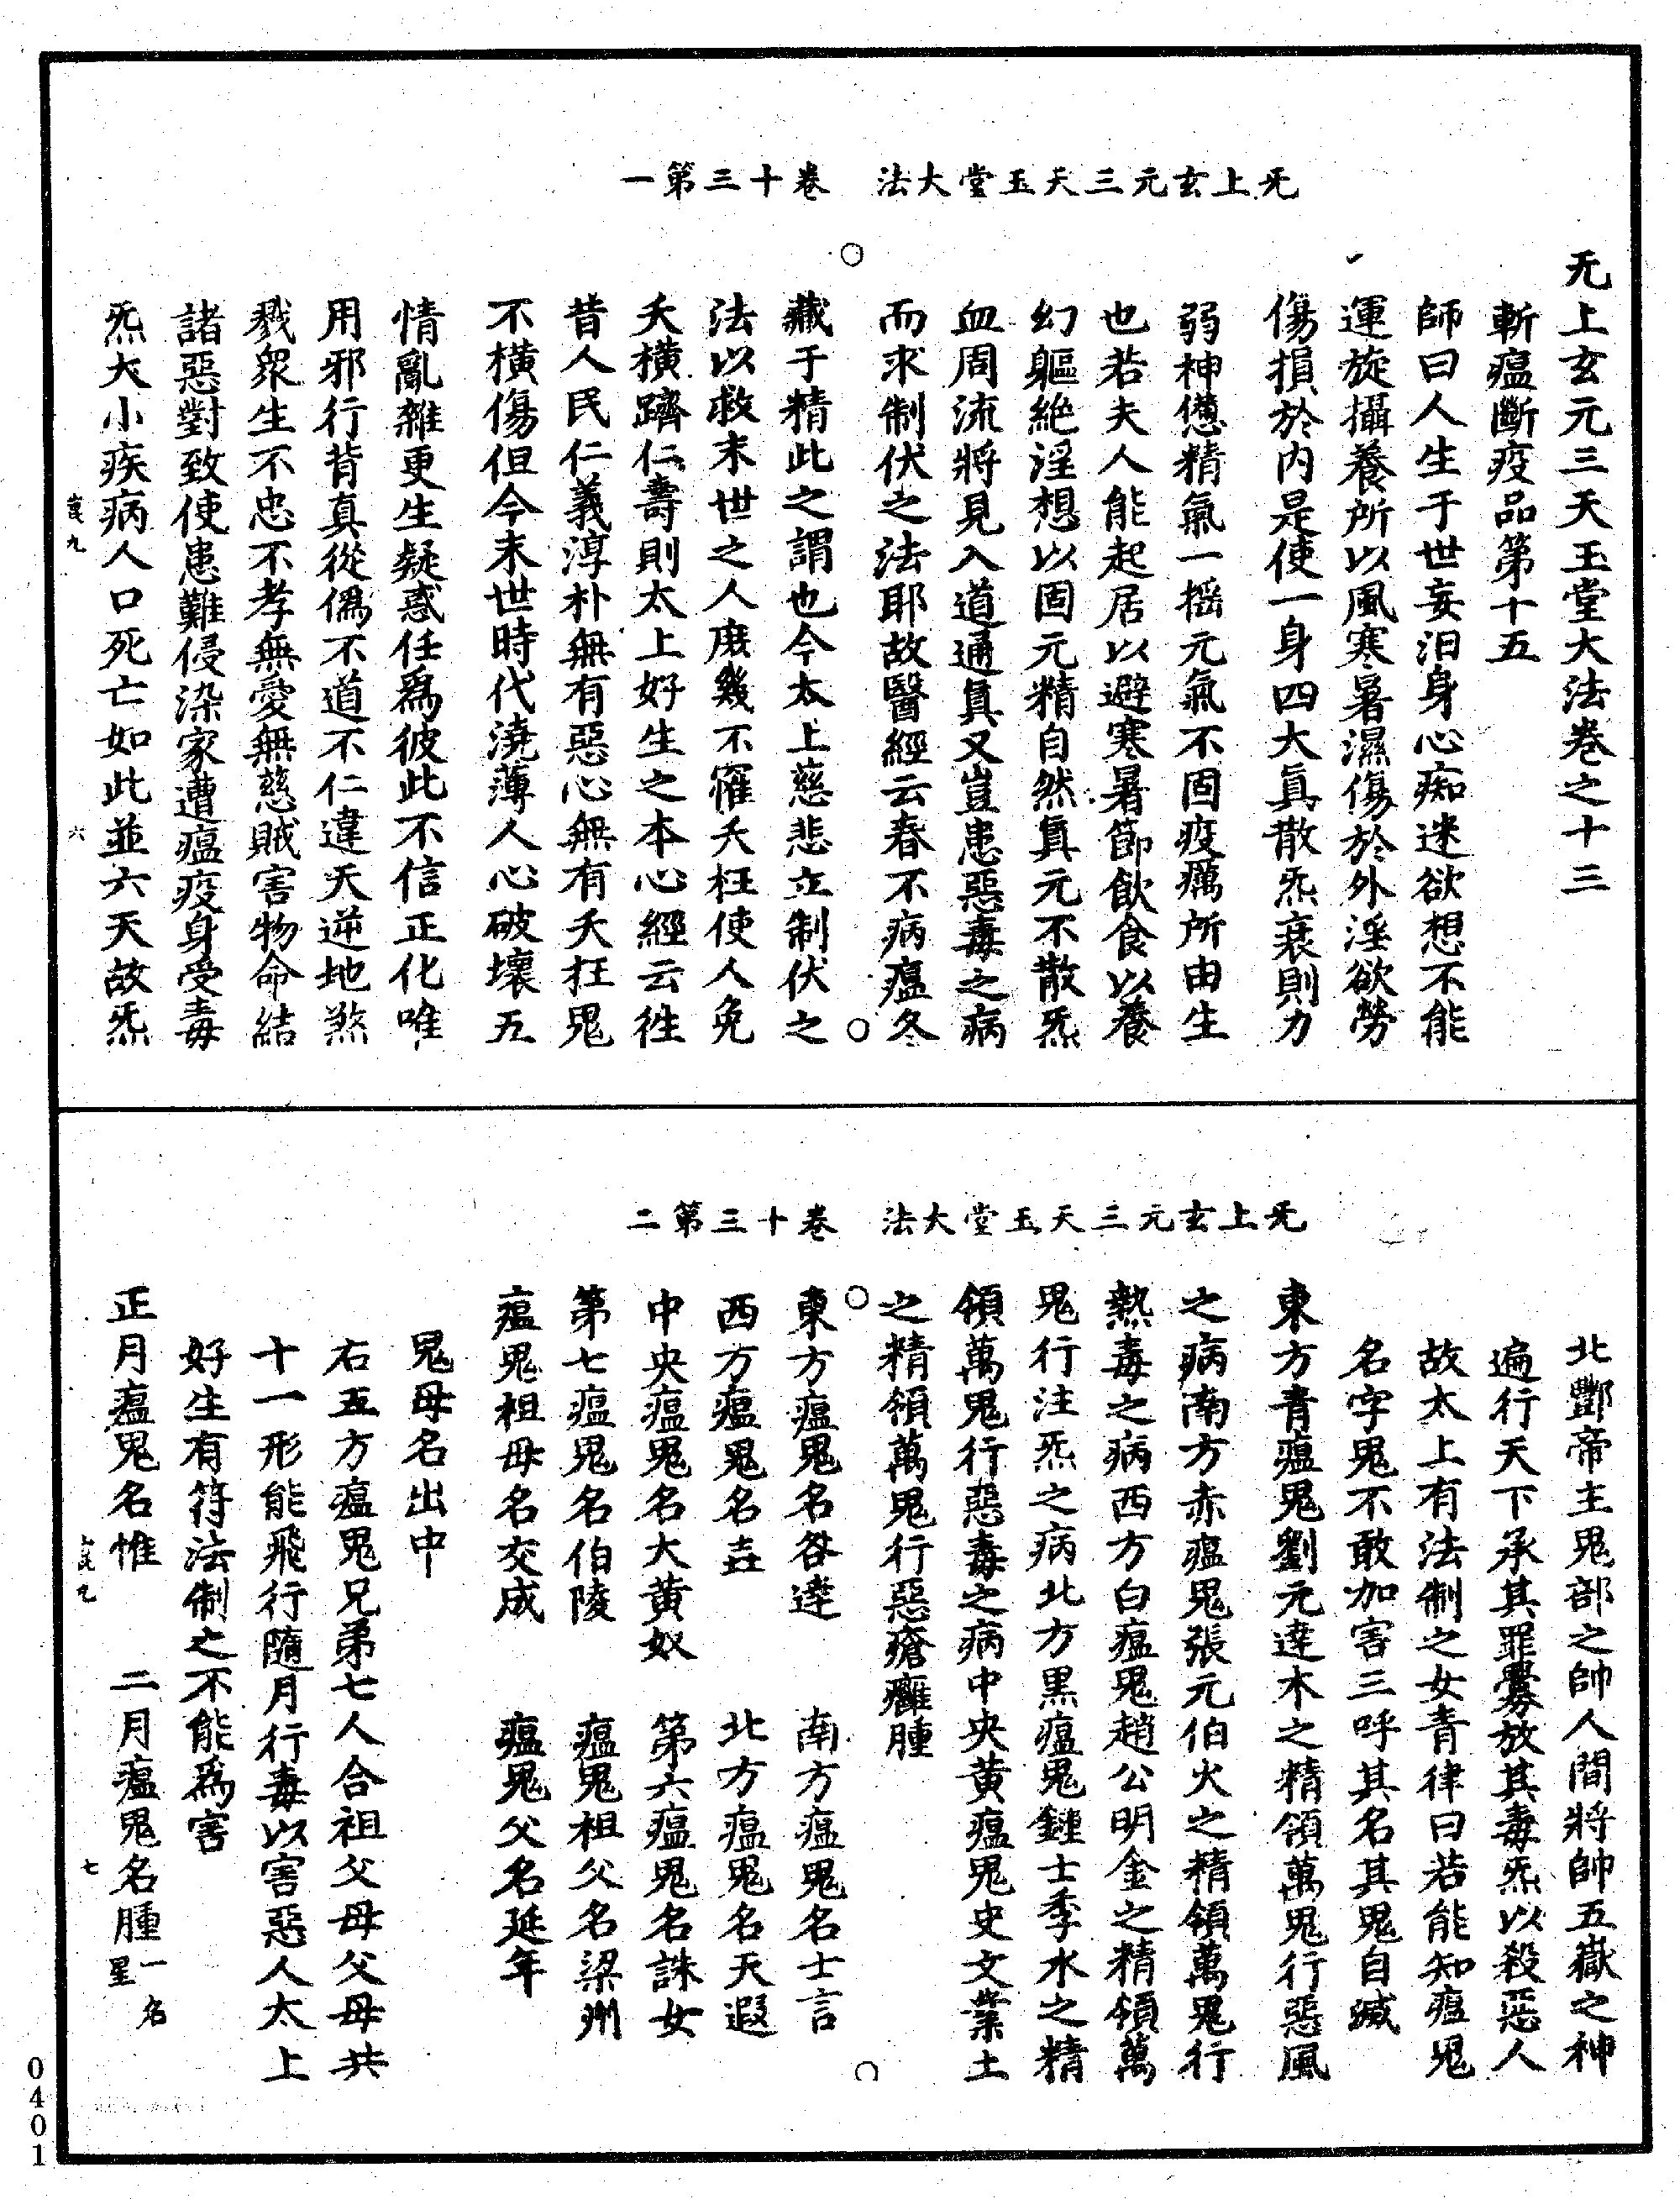 无上玄元三天玉堂大法　卷十三第一
无上玄元三天玉堂大法卷之十三
斬瘟斷疫品第十五
師曰人生于世妄汩身心痴迷欲想不能
運旋攝養所以風寒暑濕傷於外淫欲勞
傷損於內是使一身四大真散炁衰則力
弱神憊精氣一摇元氣不固疫癘所由生
也若夫人能起居以避寒暑節飲食以養
幻軀絶淫想以固元精自然真元不散炁
血周流將見入道通真又豈患惡毒之病
而求制伏之法耶故醫經云春不病瘟冬
藏于精此之謂也今太上慈悲立制伏之
法以救末世之人庶幾不罹夭枉使人免
夭橫躋仁壽則太上好生之本心經云徃
昔人民仁義淳朴無有惡心無有夭枉鬼
不橫傷但今末世時代澆薄人心破壞五
情亂雜更生疑惑任爲彼此不信正化唯
用邪行背真從僞不道不仁違天逆地煞
戮衆生不忠不孝無愛無慈賊害物命結
諸惡對致使患難侵染家遭瘟疫身受毒
炁大小疾病人口死亡如此並六天故炁
六
无上玄元三天玉堂大法　卷十三第二
北酆帝主鬼部之帥人間將帥五嶽之神
遍行天下承其罪釁放其毒炁以殺惡人
故太上有法制之女青律曰若能知瘟鬼
名字鬼不敢加害三呼其名其鬼自滅
東方青瘟鬼劉元達木之精領萬鬼行惡風
之病南方赤瘟鬼張元伯火之精領萬鬼行
熱毒之病西方白瘟鬼趙公明金之精領萬
鬼行注炁之病北方黑瘟鬼鍾士季水之精
領萬鬼行惡毒之病中央黃瘟鬼史文業土
之精領萬鬼行惡瘡癰腫
東方瘟鬼名咎達　南方瘟鬼名士言
西方瘟鬼名壵　北方瘟鬼名天遐
中央瘟鬼名大黃奴　第六瘟鬼名誅女
第七瘟鬼名伯陵　瘟鬼祖父名梁州
瘟鬼祖母名交成　瘟鬼父名延年
鬼母名出中
右五方瘟鬼兄弟七人合祖父母父母共
十一形能飛行隨月行毒以害惡人太上
好生有符法制之不能爲害
正月瘟鬼名惟　二月瘟鬼名腫一名星
七
0401